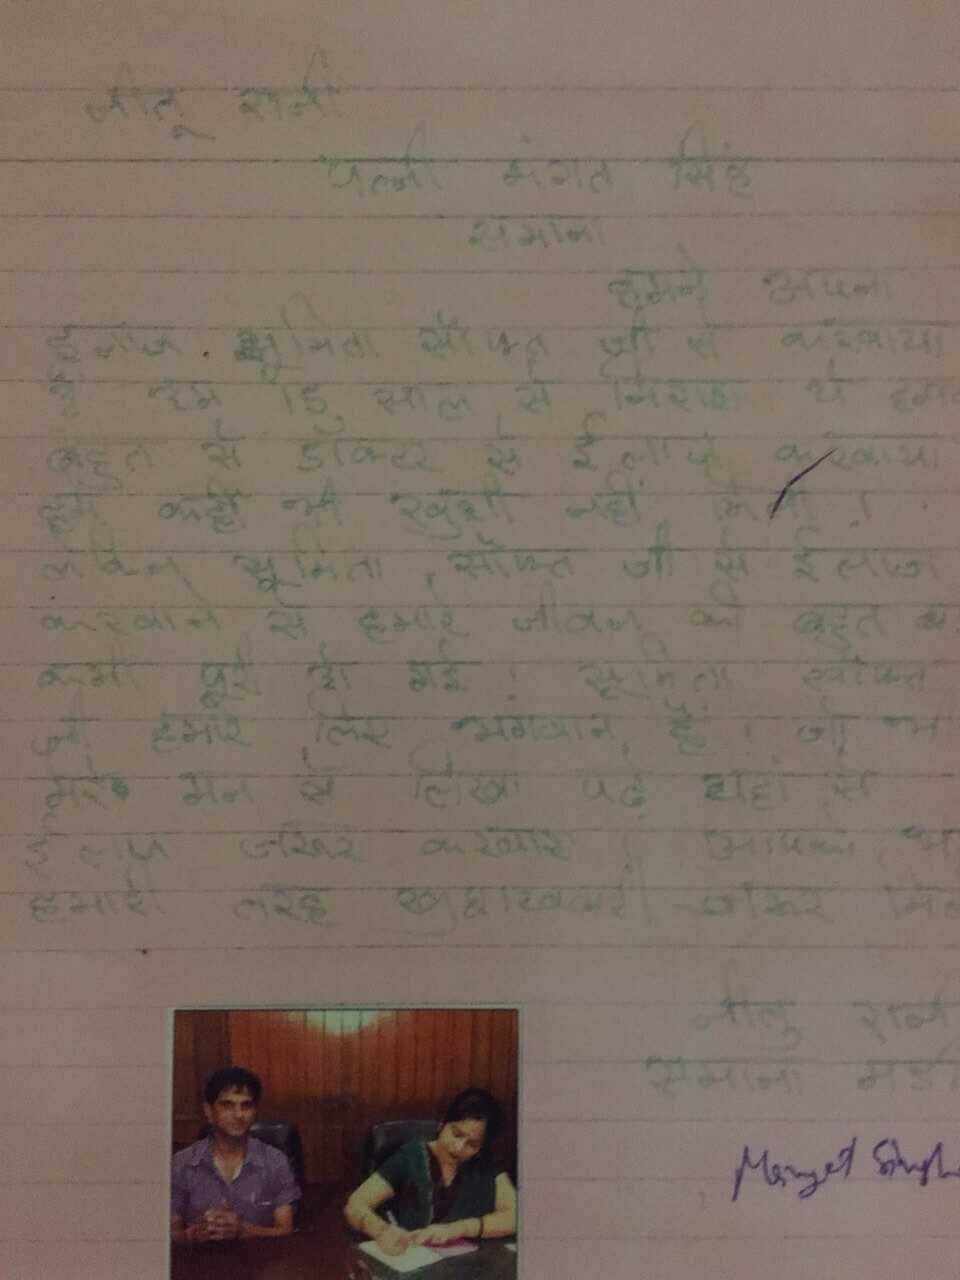 नीतू रानी
पत्नी मंगत सिंह
समाना
हमने अपना
ईलाज सूमिता सौफत जी से करवाया
है हम साल से निराश थे
बहुत से डॉक्टर से ईलाज करवाया
हमें कही भी खुशी नहीं मिली !
लेकिन सूमिता सौफत जी से ईलाज
करवाने से हमारे जीवन की बहुत
कमी पूरी हो गई ! सूमिता सौफत
जी हमारे लिए भगवान है ! जो भी
मेरे मन से लिखा पढ़े यहां से
ईलाज जरूर करवाए ! आपको
हमारी तरह खुशखबरी जरूर
नीतू रानी
समाना मंडी
Mangat Singh